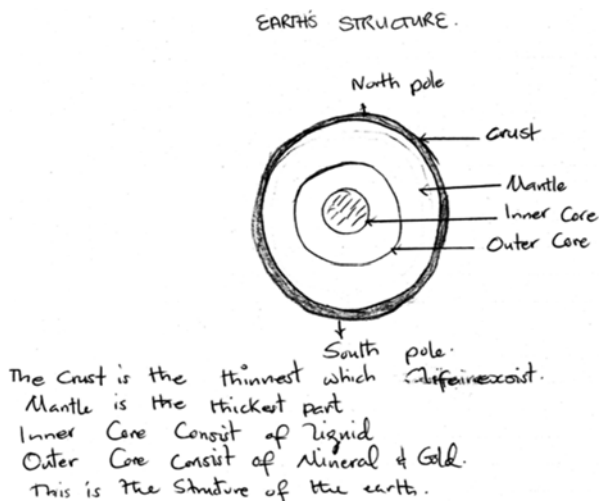 EARTH'S STRUCTURE.
North pole
Crust
Mantle
Inner Core
Outer Core
South pole.
The Crust is the thinnest which
Mantle is the thickest part
Inner Core Consist of liquid
Outer Core Consist of Mineral & Gold.
This is the Struture of the earth.